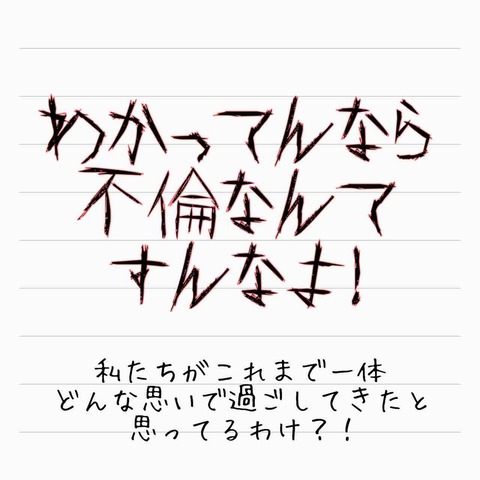 わかってんなら
不倫なんて
すんなよ!
私たちがこれまで一体
どんな思いで過ごしてきたと
思ってるわけ?!